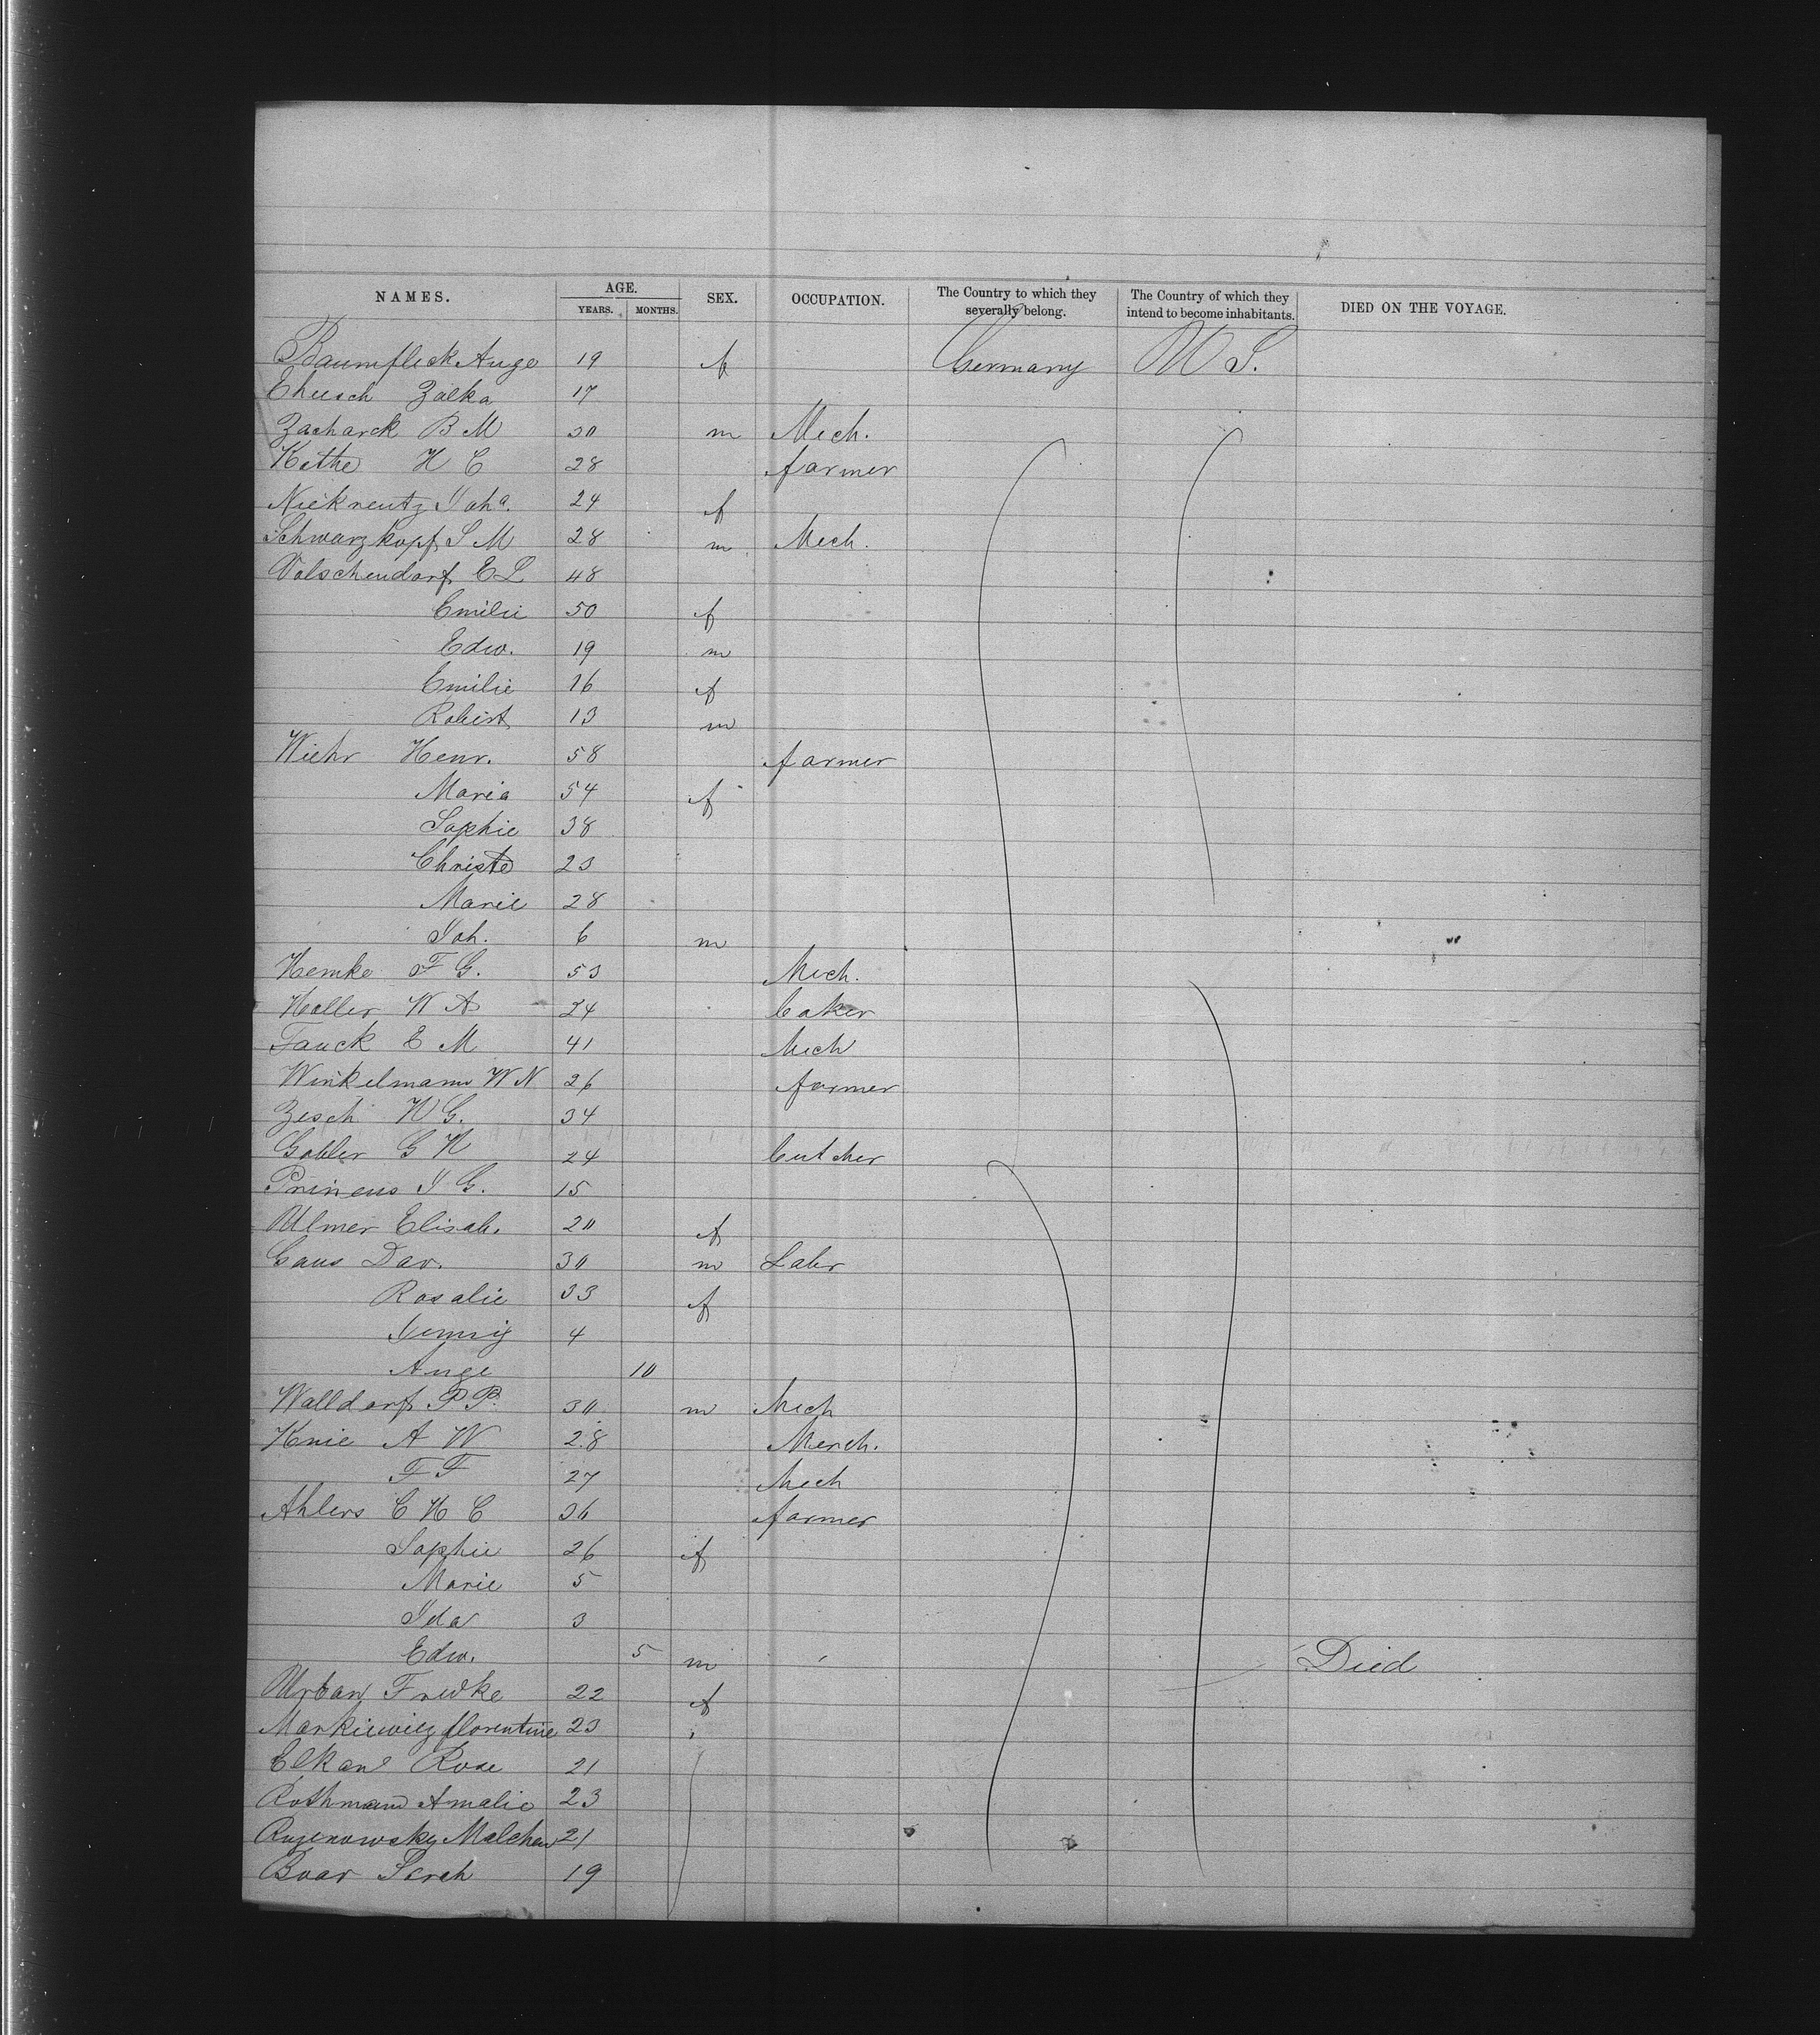 NAMES. AGE. YEARS. MONTHS. SEX. OCCUPATION. The Country to which they severally belong. The Country of which they intend to become inhabitants. DIED ON THE VOYAGE.
Baumfleck Auge 19 f Germany U S.
Zalka 17
Zacharck B M 30 m Mech.
Kethe H C 28 farmer
Nickrentz Joha. 24 f
Schwarzkopf S M 28 m Mech.
Volschendorf E L 48
Emilie 50 f
Edw. 19 m
Emilie 16 f
Robert 13 m
Wiehr Henr. 58 farmer
Maria 54 f
Sophie 38
Christe 23
Marie 28
Joh. 6 m
Hemke F G. 53 Mech.
Haller W A 24 baker
Fauck E M 41 Mech
Winkelmann W N 26 farmer
Zesch H G. 34
Gabler G H 24 butcher
J G. 15
Ulmer Elisab. 20 f
Gaus Dav. 30 m Labr
Rosalie 33 f
Jenny 4
Auge 10
Walldorf P P. 30 m Mech
Knie A W 28 Merch.
F F 27 Mech
Ahlers C H C 36 farmer
Sophie 26 f
Marie 5
Ida 3
Edw. 5 m Died
Urban Fredke 22 f
Markiewicz florentine 23
Elkan Rose 21
Rothmann Amalie 23
Malchen 21
Boar Sarah 19